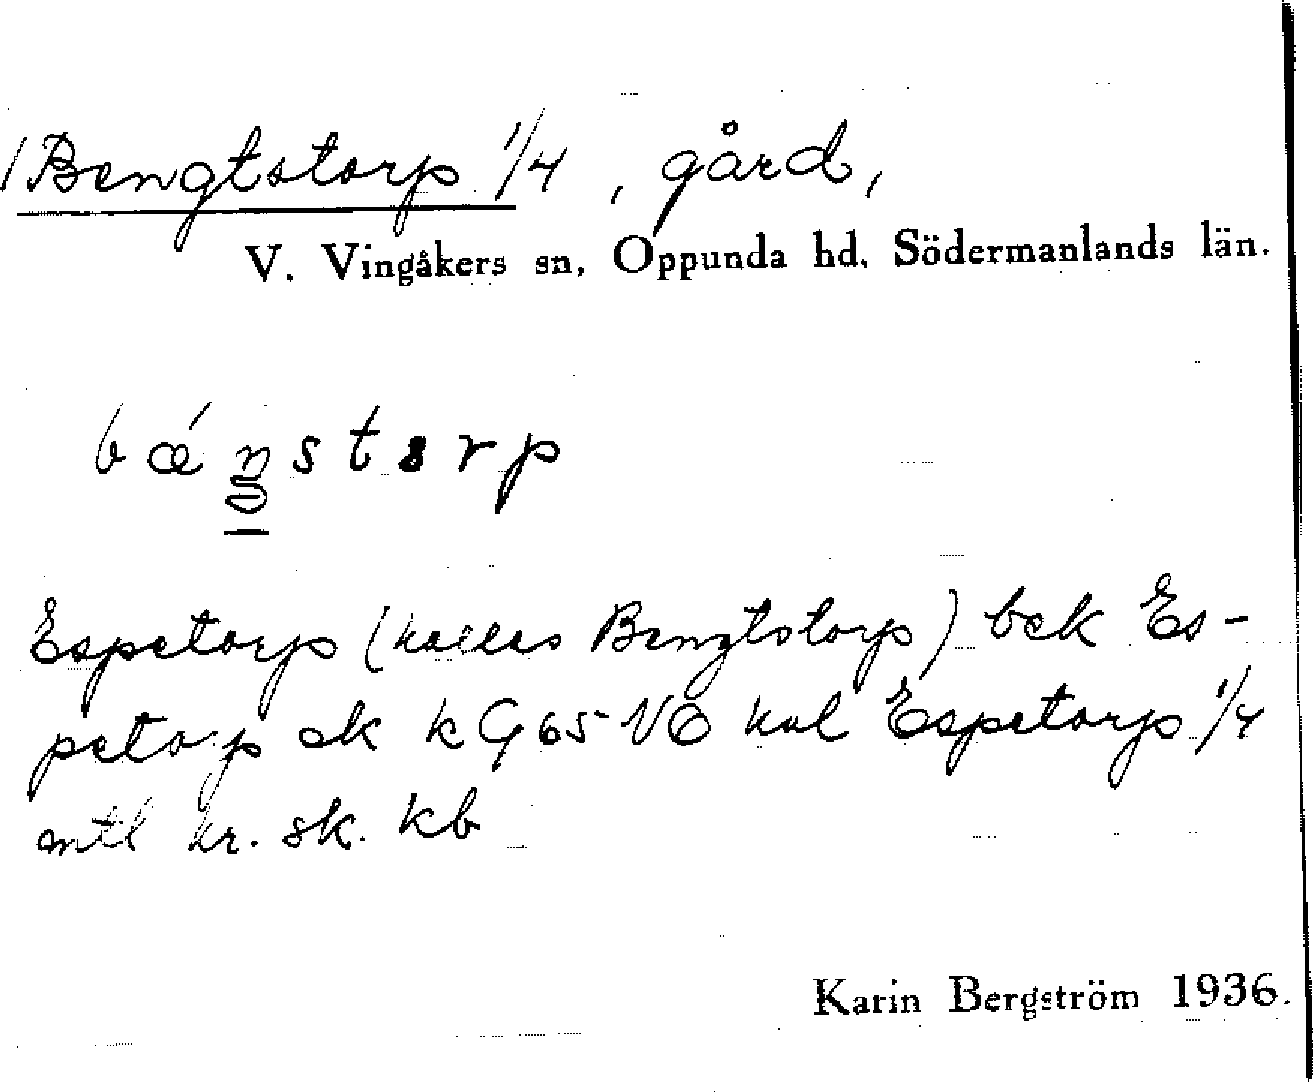 Bengtstorp 1/4, gård,
V. Vingåkers sn, Oppunda hd, Södermanlands län.
Espetorp (kallas Bengtstorp) bek Es-
petorp ek kG65 VÖ kal Espetorp 1/4
mtl kr. sk. kb
Karin Bergström 1936.